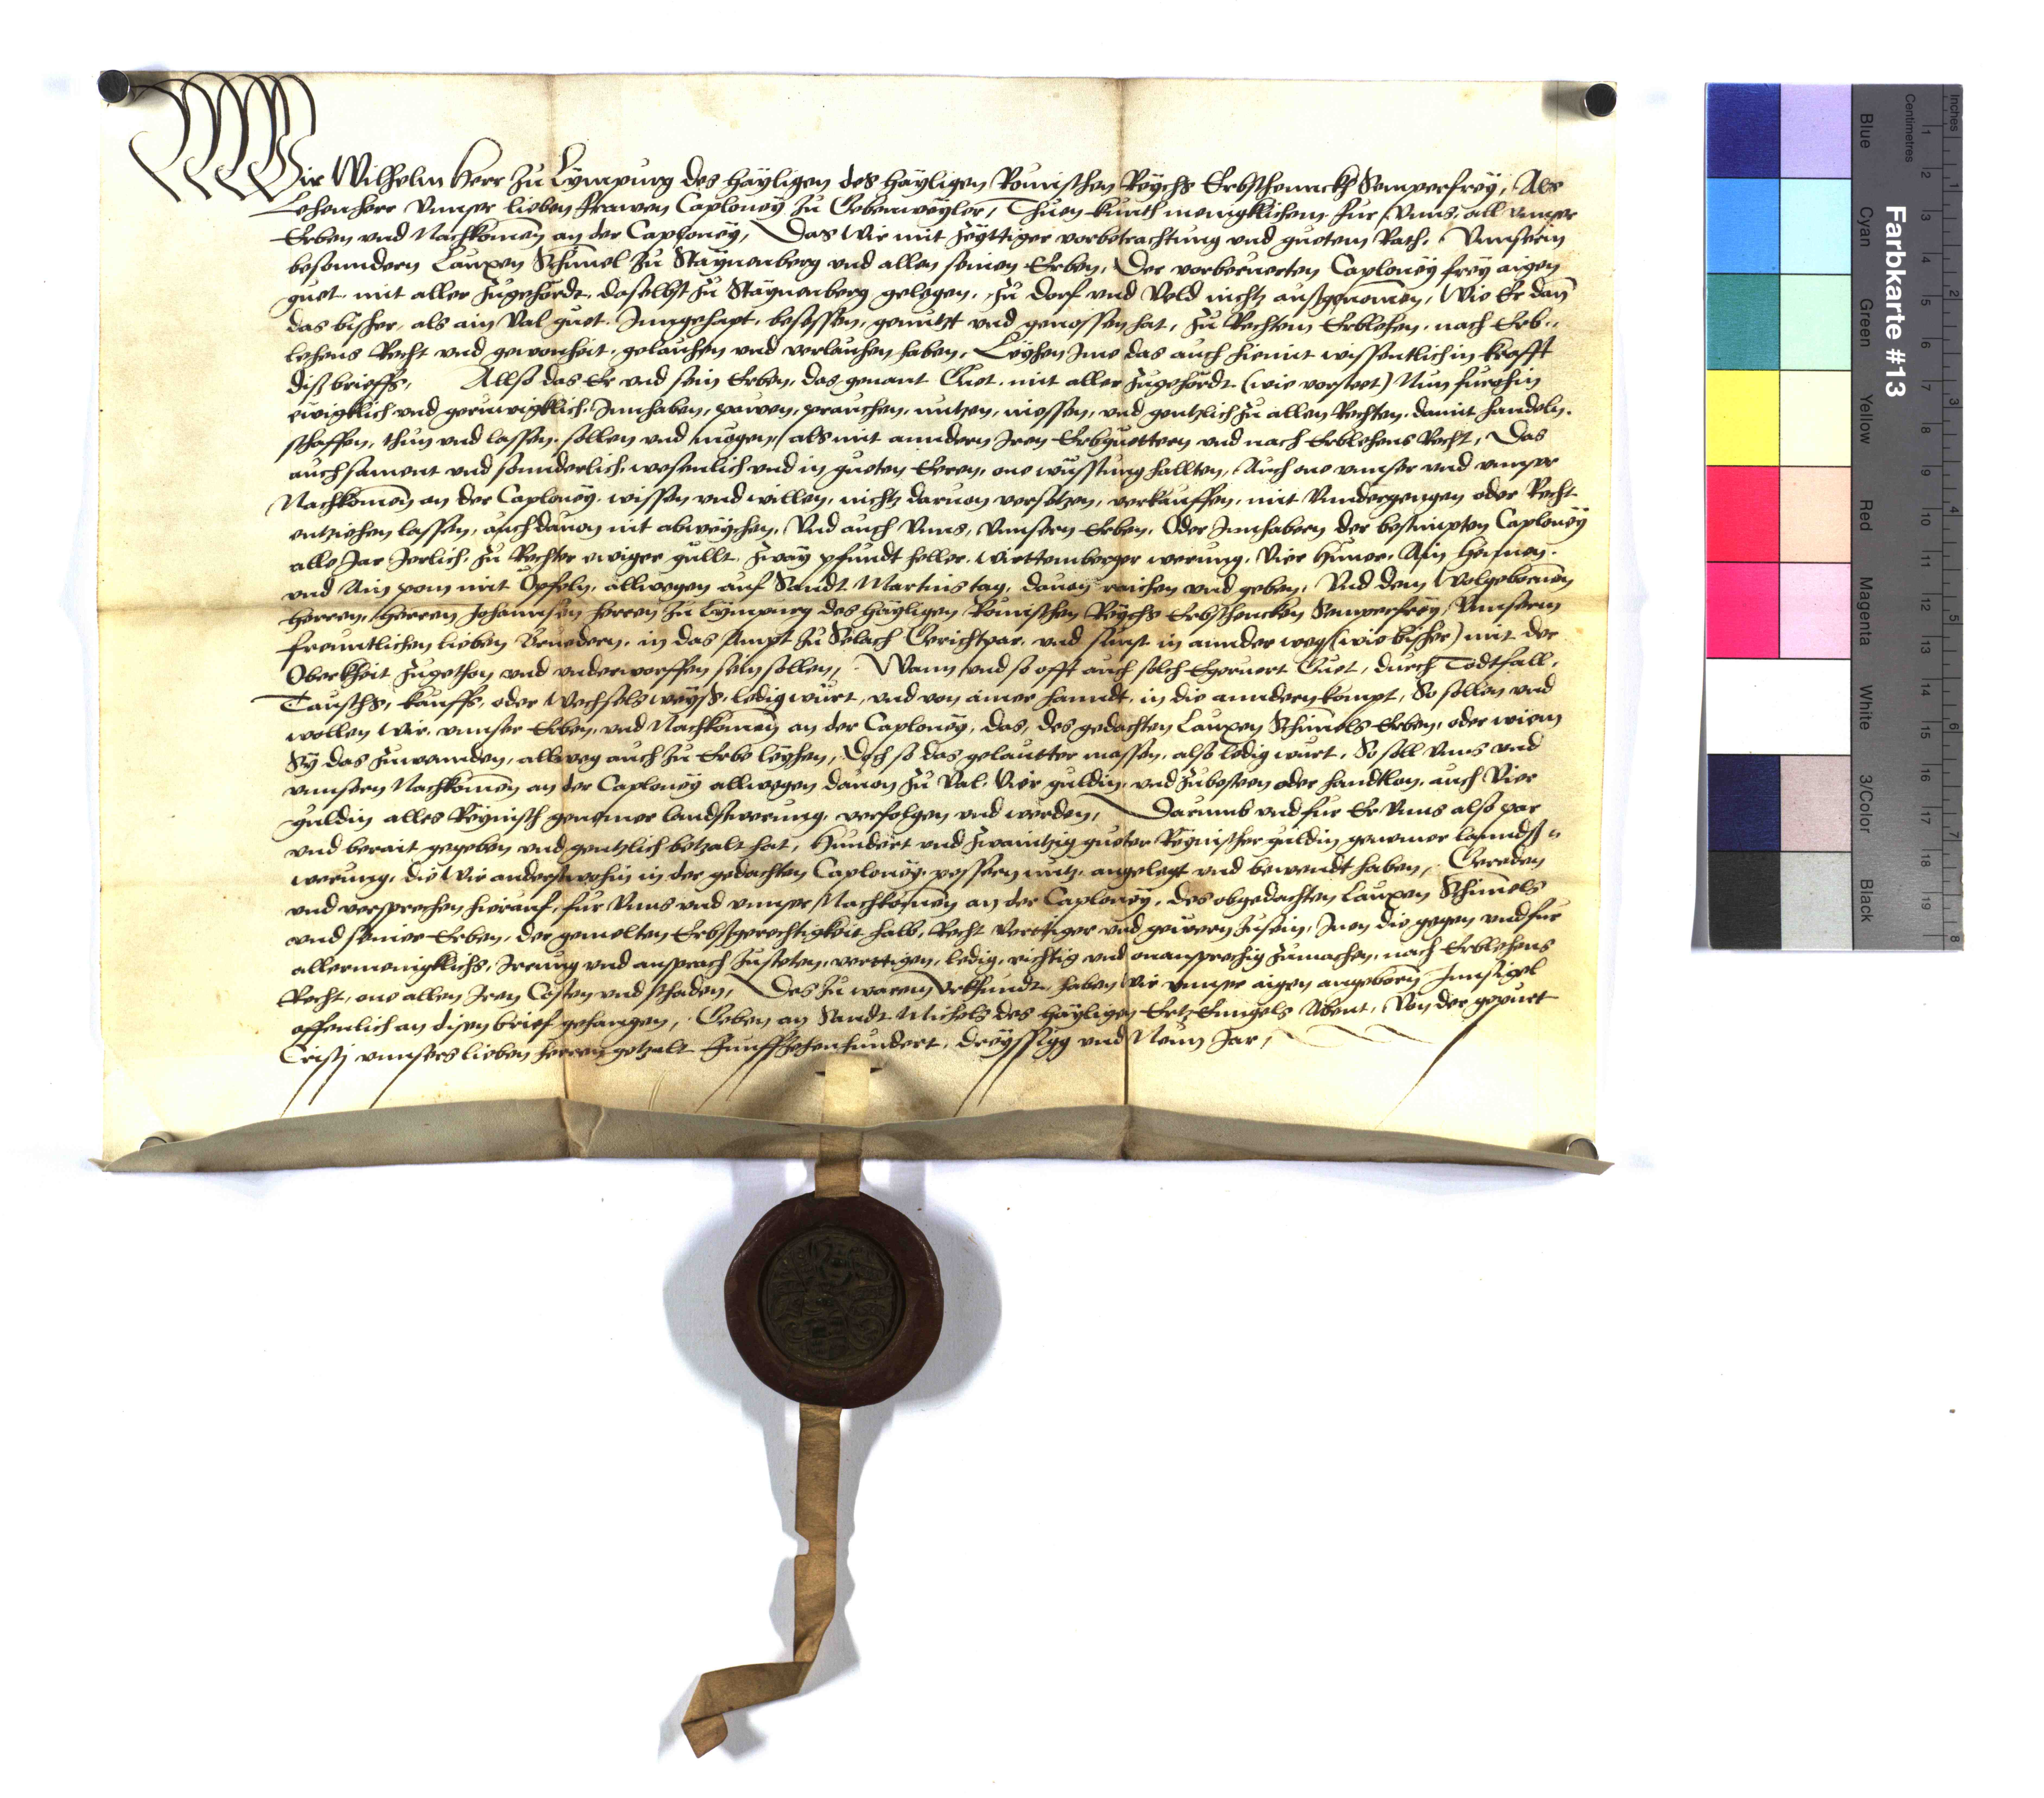 Wir Wilhelm Herr zu Lympurg des häyligen des häyligen Römischen Reychs Erbschennckh Semperfrey, Als
Lehenherr vnnser lieben frawen Caploney zu Gebenweyler, Thuen kunth menigklichem fur vnns, all vnnser
Erben vnd Nachkomen an der Caploney, Das wir mit zeyttiger vorbetrachtung vnd guotem Rath, Vnnserm
besonndern Lauxen Schimel zu Staynenberg vnd allen seinen Erben, Der vorberuerten Caploney frey aigen
guet mit aller zugehördt, daselbst zu Staynenberg gelegen, zu dorf vnd Veld nichtz außgenomen, wie Er dan
das bisher, als ain Val guet Inngehapt, besessen, genutzt vnd genossen hat, zu Rechtem Erblehen, nach Erb-
lehens Recht vnd gewonheit, gelauhen vnd verlauhen haben, Leyhen Ime das auch hiemit wissentlich in krafft
diß brieffs, Allso das Er vnd sein Erben, das genant Guet, mit aller zugehördt (wie vorsteet) Nun furohin
ewigklich vnd geruwigklich, Innhaben, pawen, prauchen, nutzen, niessen, vnd gentzlich zu allen Rechten damit handeln,
schaffen, thun vnd lassen, sollen vnd mögen, als mit anndern Iren Erbguettern vnd nach Erblehens Recht, Das
auch sament vnd sonnderlich, wesenlich vnd in guoten Eeren, one wüsstung hallten, Auch one vnnser vnd vnnser
Nachkomen an der Caploney, wissen vnd willen, nichtz daruon versetzen, verkauffen, mit Vnndergengen oder Recht
entziehen lassen, auch dauon nit abweychen, Vnd auch Vnns, Vnnsern Erben, Oder Innhabern der bestimpten Caploney
alle Jar Jerlich, zu Rechter ewiger gullt, Zway pfundt heller, wirttemberger werung, Vier Hüner, Ain Hennen,
vnd Ain pom mit Öpfeln, allwegen auf Sandt Martins tag, dauon raichen vnd geben, Vnd dem Wolgebornen
Herren, Herren Johannsen Herren zu Lympurg des häyligen Römischen Reychs Erbschencken Semperfrey, Vnnserm
freuntlichen lieben Veuedern, in das Ampt zu Selach Gerichtpar, vnd sunst in annder weg (wie bisher) mit der
Oberkheit zugethon vnd vnderworffen sein sollen, Wann vnd so offt auch solch Egeruert Guet, durch Todtfall,
Tauschs, kauffs, oder Wechsels weyß, ledig würt, vnd von ainer hanndt, in die anndern kompt, So sollen vnd
wollen wir, vnnser Erben, vnd Nachkomen an der Caploney, das, des gedachten Lauxen Schimels Erben, oder wiem
Sy das zuwennden, allweg auch zu Erbe leyhen, Doch so das gelautter massen, also ledig würt, So soll Vnns vnd
vnnsern Nachkomen an der Caploney allwegen dauon zu Val, Vier guldin, vnd zubesteen oder handtlon, auch Vier
guldin alles Reynisch genemer landswerung, verfolgen vnd werden, Darumb vnd fur Er Vnns also par
vnd berait gegeben vnd gentzlich betzalt hat, Hundert vnd zwaintzig guoter Reynischer guldin genemer lannds-
werung, die Wir anderstwohin in der gedachten Caploney, pessern nutz, angelegt vnd bewendt haben, Gereden
vnd versprechen hierauf, fur Vnns vnd vnnser Nachkomen an der Caploney, des obgedachten Lauxen Schimels
vnd seiner Erben, der gemelten Erbsgerechtigkeit halb, Recht Verttiger vnd geweren zusein, Inen die gegen vnd fur
allermenigklichs, Irrung vnd ansprach zusteten, verttigen, ledig, richtig vnd onansprechig zumachen, nach Erblehens
Recht, one allen Iren Costen vnd schaden, Des zu warem Vrkhundt, haben wir vnnser aigen angeborn Innsigel
offenlich an disen brief gehangen, Geben an Sandt Michels des häyligen Ertz Enngels Abent, Von der gepurt
Cristi vnnsers lieben herren getzalt Funfftzehenhundert, dreyssigg vnd Neun Jar,
Farbkarte #13
Inches
Centimetres
1 2 3 4 5 6 7 8
1 2 3 4 5 6 7 8 9 10 11 12 13 14 15 16 17 18 19
Blue
Cyan
Green
Yellow
Red
Magenta
White
3/Color
Black